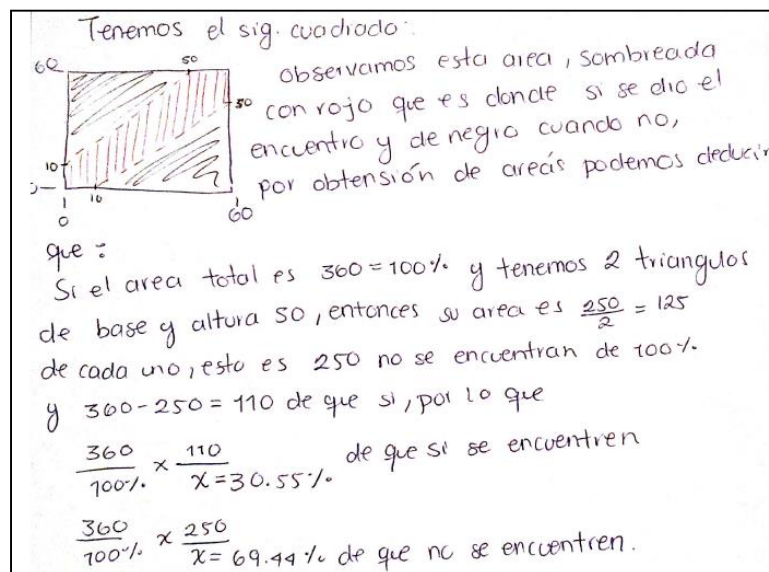 Tenemos el sig. cuadrado:
60
50
observamos esta area, sombreada
50
con rojo que es donde si se dio el
encuentro y de negro cuando no,
10
por obtención de areas podemos deducir
10
0
60
que:
Si el area total es 360 = 100% y tenemos 2 triangulos
de base y altura 50, entonces su area es 250/2 = 125
de cada uno, esto es 250 no se encuentran de 100%
y 360-250 = 110 de que si, por lo que
360/100% x 110/x = 30.55% de que si se encuentren
360/100% x 250/x = 69.44% de que no se encuentren.